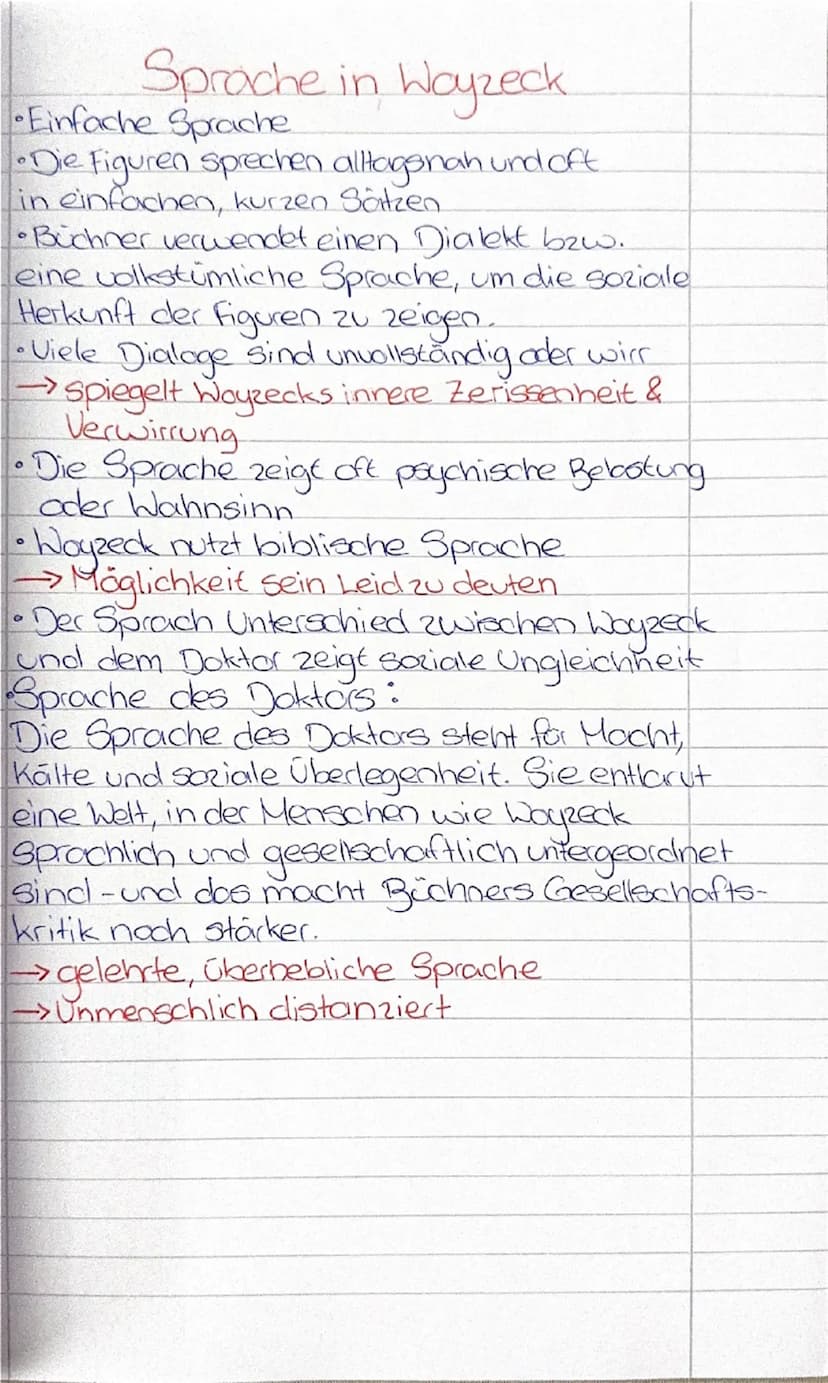 Sprache in Woyzeck
• Einfache Sprache
• Die Figuren sprechen alltagsnah und oft
in einfachen, kurzen Sätzen
• Büchner verwendet einen Dialekt bzw.
eine volkstümliche Sprache, um die soziale
Herkunft der Figuren zu zeigen.
• Viele Dialoge sind unvollständig oder wirr
→ spiegelt Woyzecks innere Zerissenheit &
Verwirrung
• Die Sprache zeigt oft psychische Belastung
oder Wahnsinn
• Woyzeck nutzt biblische Sprache
→ Möglichkeit sein Leid zu deuten
• Der Sprach Unterschied zwischen Woyzeck
und dem Doktor zeigt soziale Ungleichheit
• Sprache des Doktors:
Die Sprache des Doktors steht für Macht,
Kälte und soziale Überlegenheit. Sie entlarvt
eine Welt, in der Menschen wie Woyzeck
sprachlich und gesellschaftlich untergeordnet
sind - und das macht Büchners Gesellschafts-
kritik noch stärker.
→ gelehrte, überhebliche Sprache
→ Unmenschlich distanziert